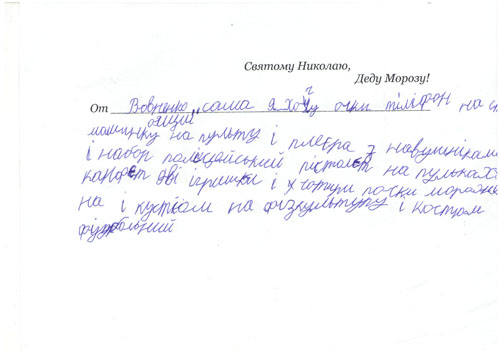 Святому Николаю,
Деду Морозу!
От Вовченко сама я хочу очки тіліфон на
машинку на пульту і плєєра з навушнікамі
і набор поліцейський пістолєт на пульках
канфєт дві ігрушки і чотири пачки мораже
на і кустюм на фізкультуру і костюм
фудбольний